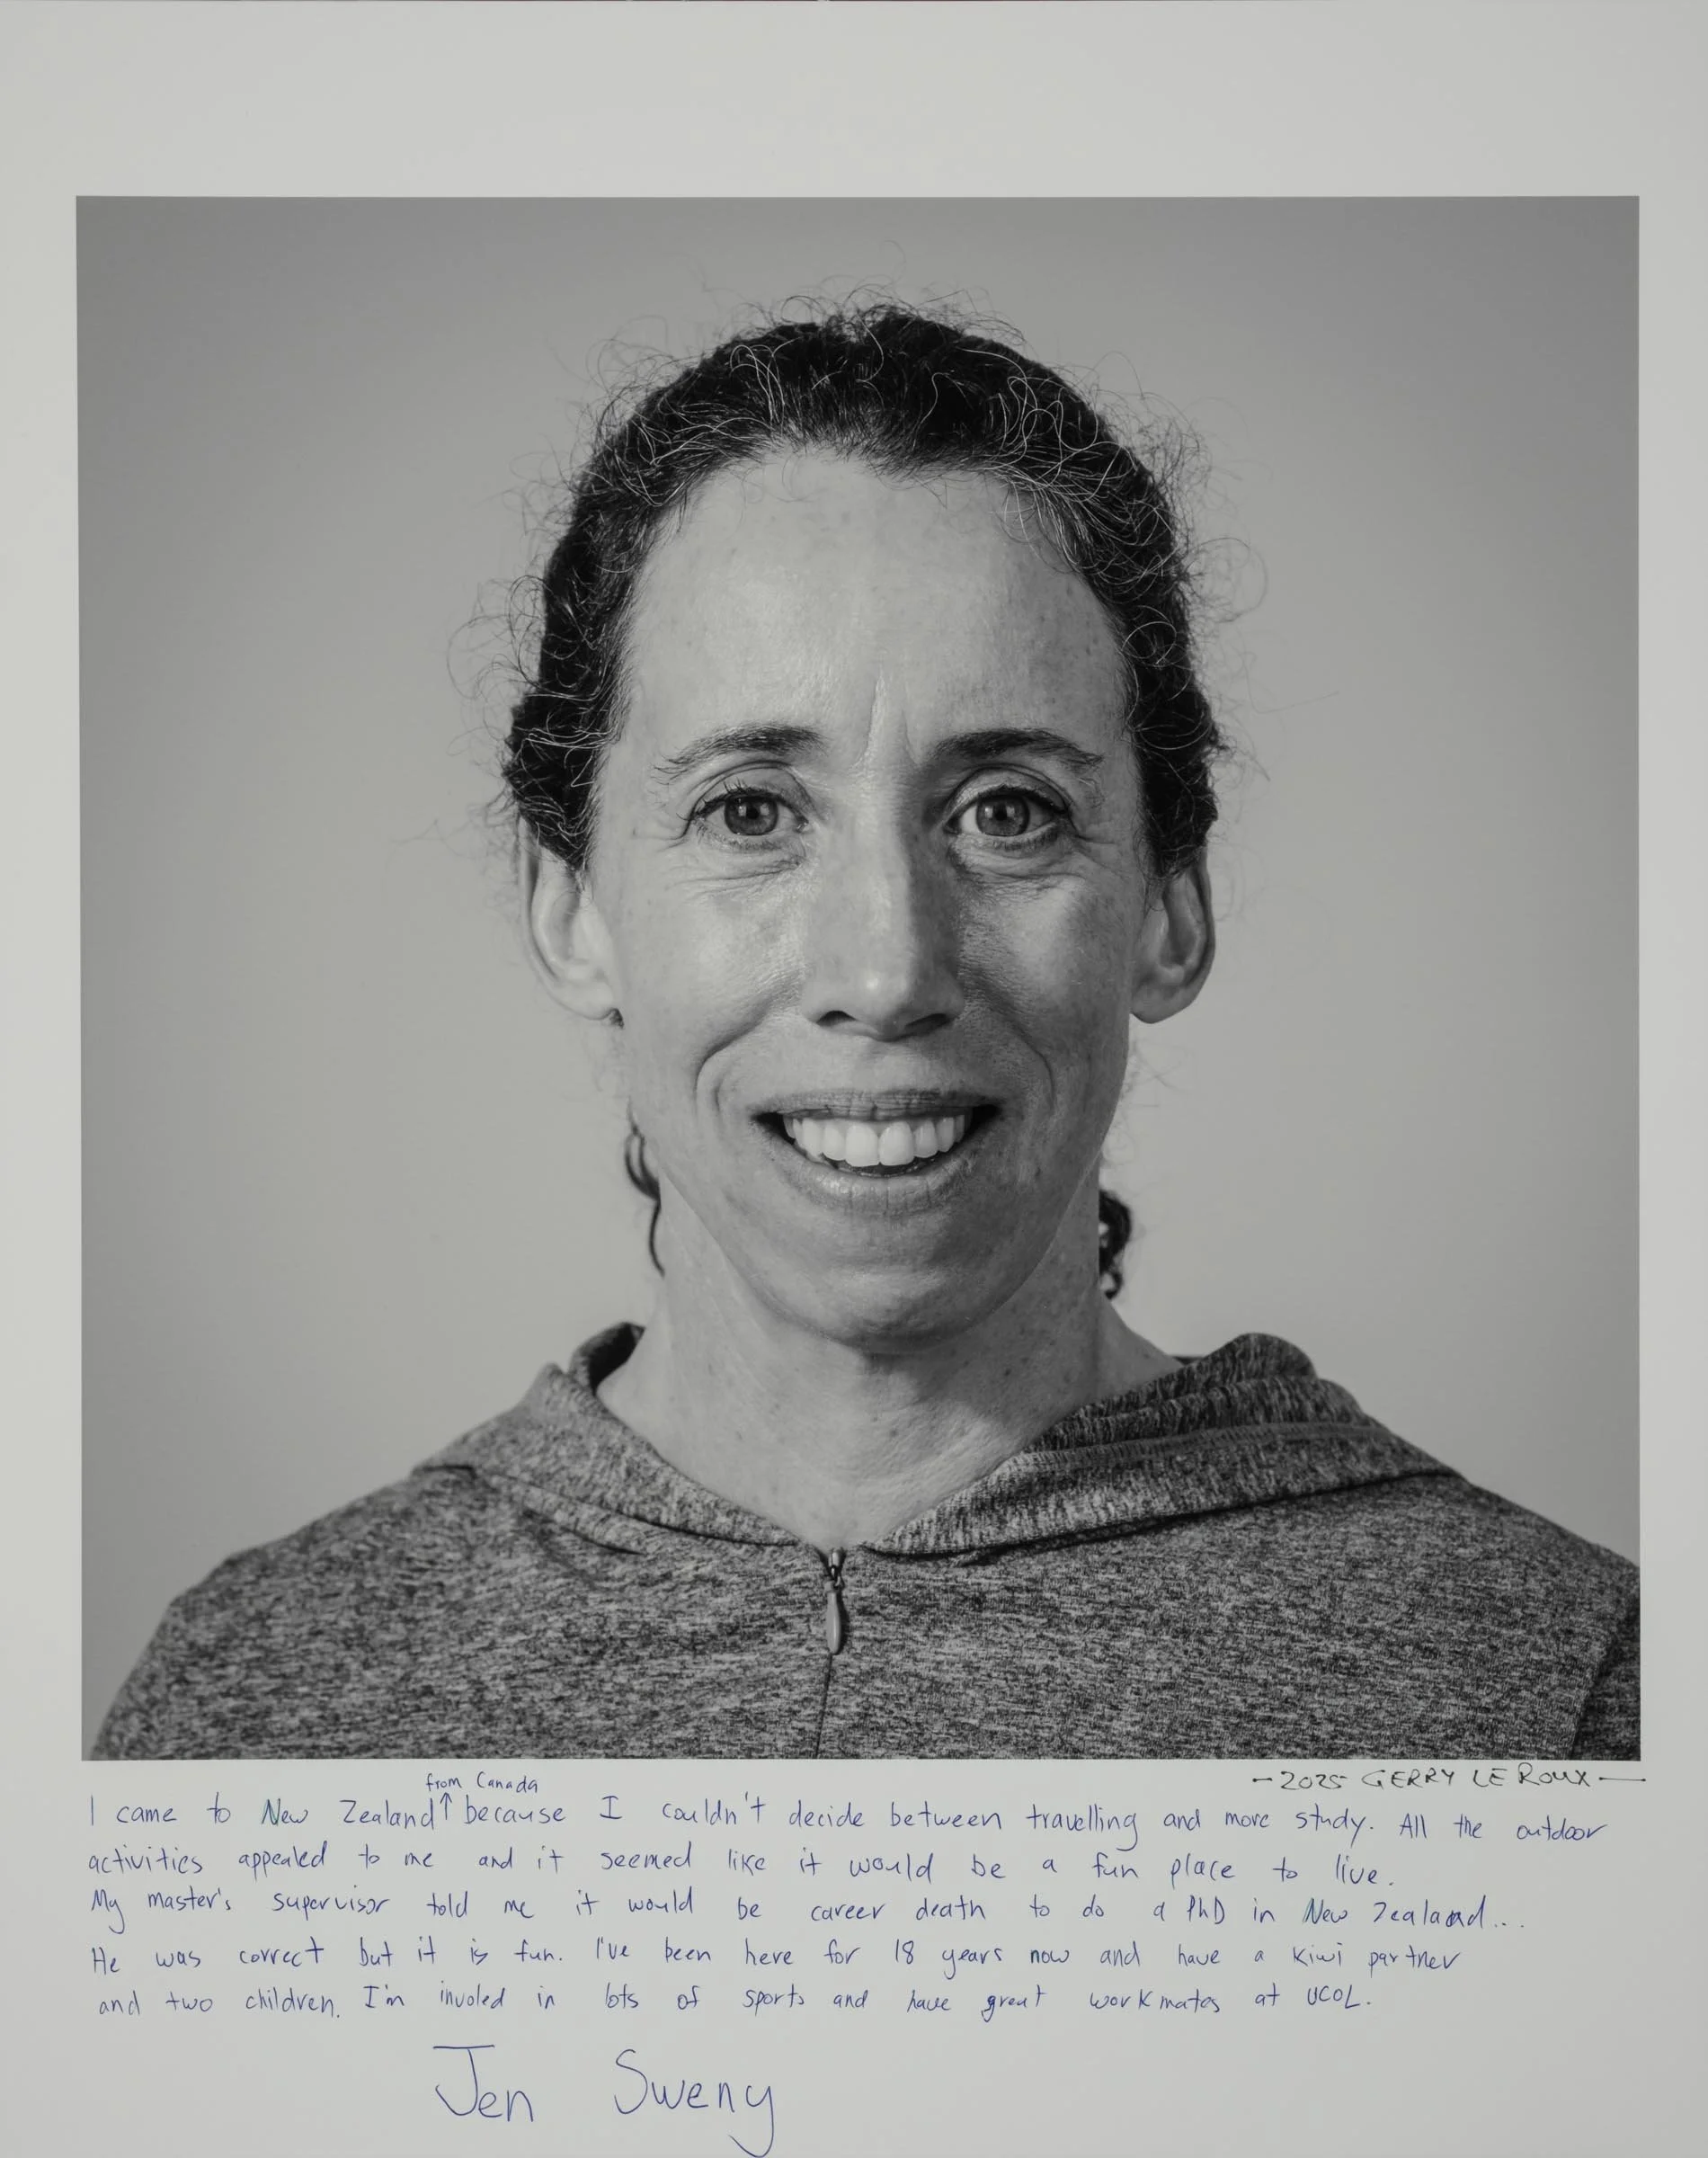 — 2025 GERRY LE ROUX —
from Canada
I came to New Zealand ↑ because I couldn't decide between travelling and more study. All the outdoor
activities appealed to me and it seemed like it would be a fun place to live.
My master's supervisor told me it would be career death to do a PhD in New Zealand...
He was correct but it is fun. I've been here for 18 years now and have a Kiwi partner
and two children. I'm involed in lots of sports and have great workmates at UCOL.
Jen Sweny